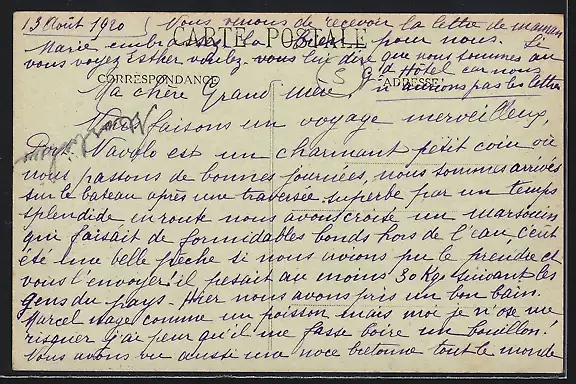 13 Août 1920 (Nous venons de recevoir la lettre de maman
CARTE POSTALE
Marie embrassez la bien pour nous. Si
vous voyez Esther voulez-vous lui dire que nous sommes au
G d Hôtel car nous
CORRESPONDANCE
ADRESSE
n'aurions pas les lettres
Ma chère Grand mère,
Nous faisons un voyage merveilleux,
Port Navalo est un charmant petit coin où
nous passons de bonnes journées, nous sommes arrivés
sur le bateau après une traversée superbe par un temps
splendide en route nous avons croisé un marsouin
qui faisait de formidables bonds hors de l'eau, c'eut
été une belle pêche si nous avions pu le prendre et
vous l'envoyer! il pesait au moins 30 Kgs suivant les
gens du pays. Hier nous avons pris un bon bain.
Marcel nage comme un poisson mais moi je n'ose me
risquer (j'ai peur qu'il me fasse boire un bouillon!
Nous avons vu aussi une noce bretonne tout le monde